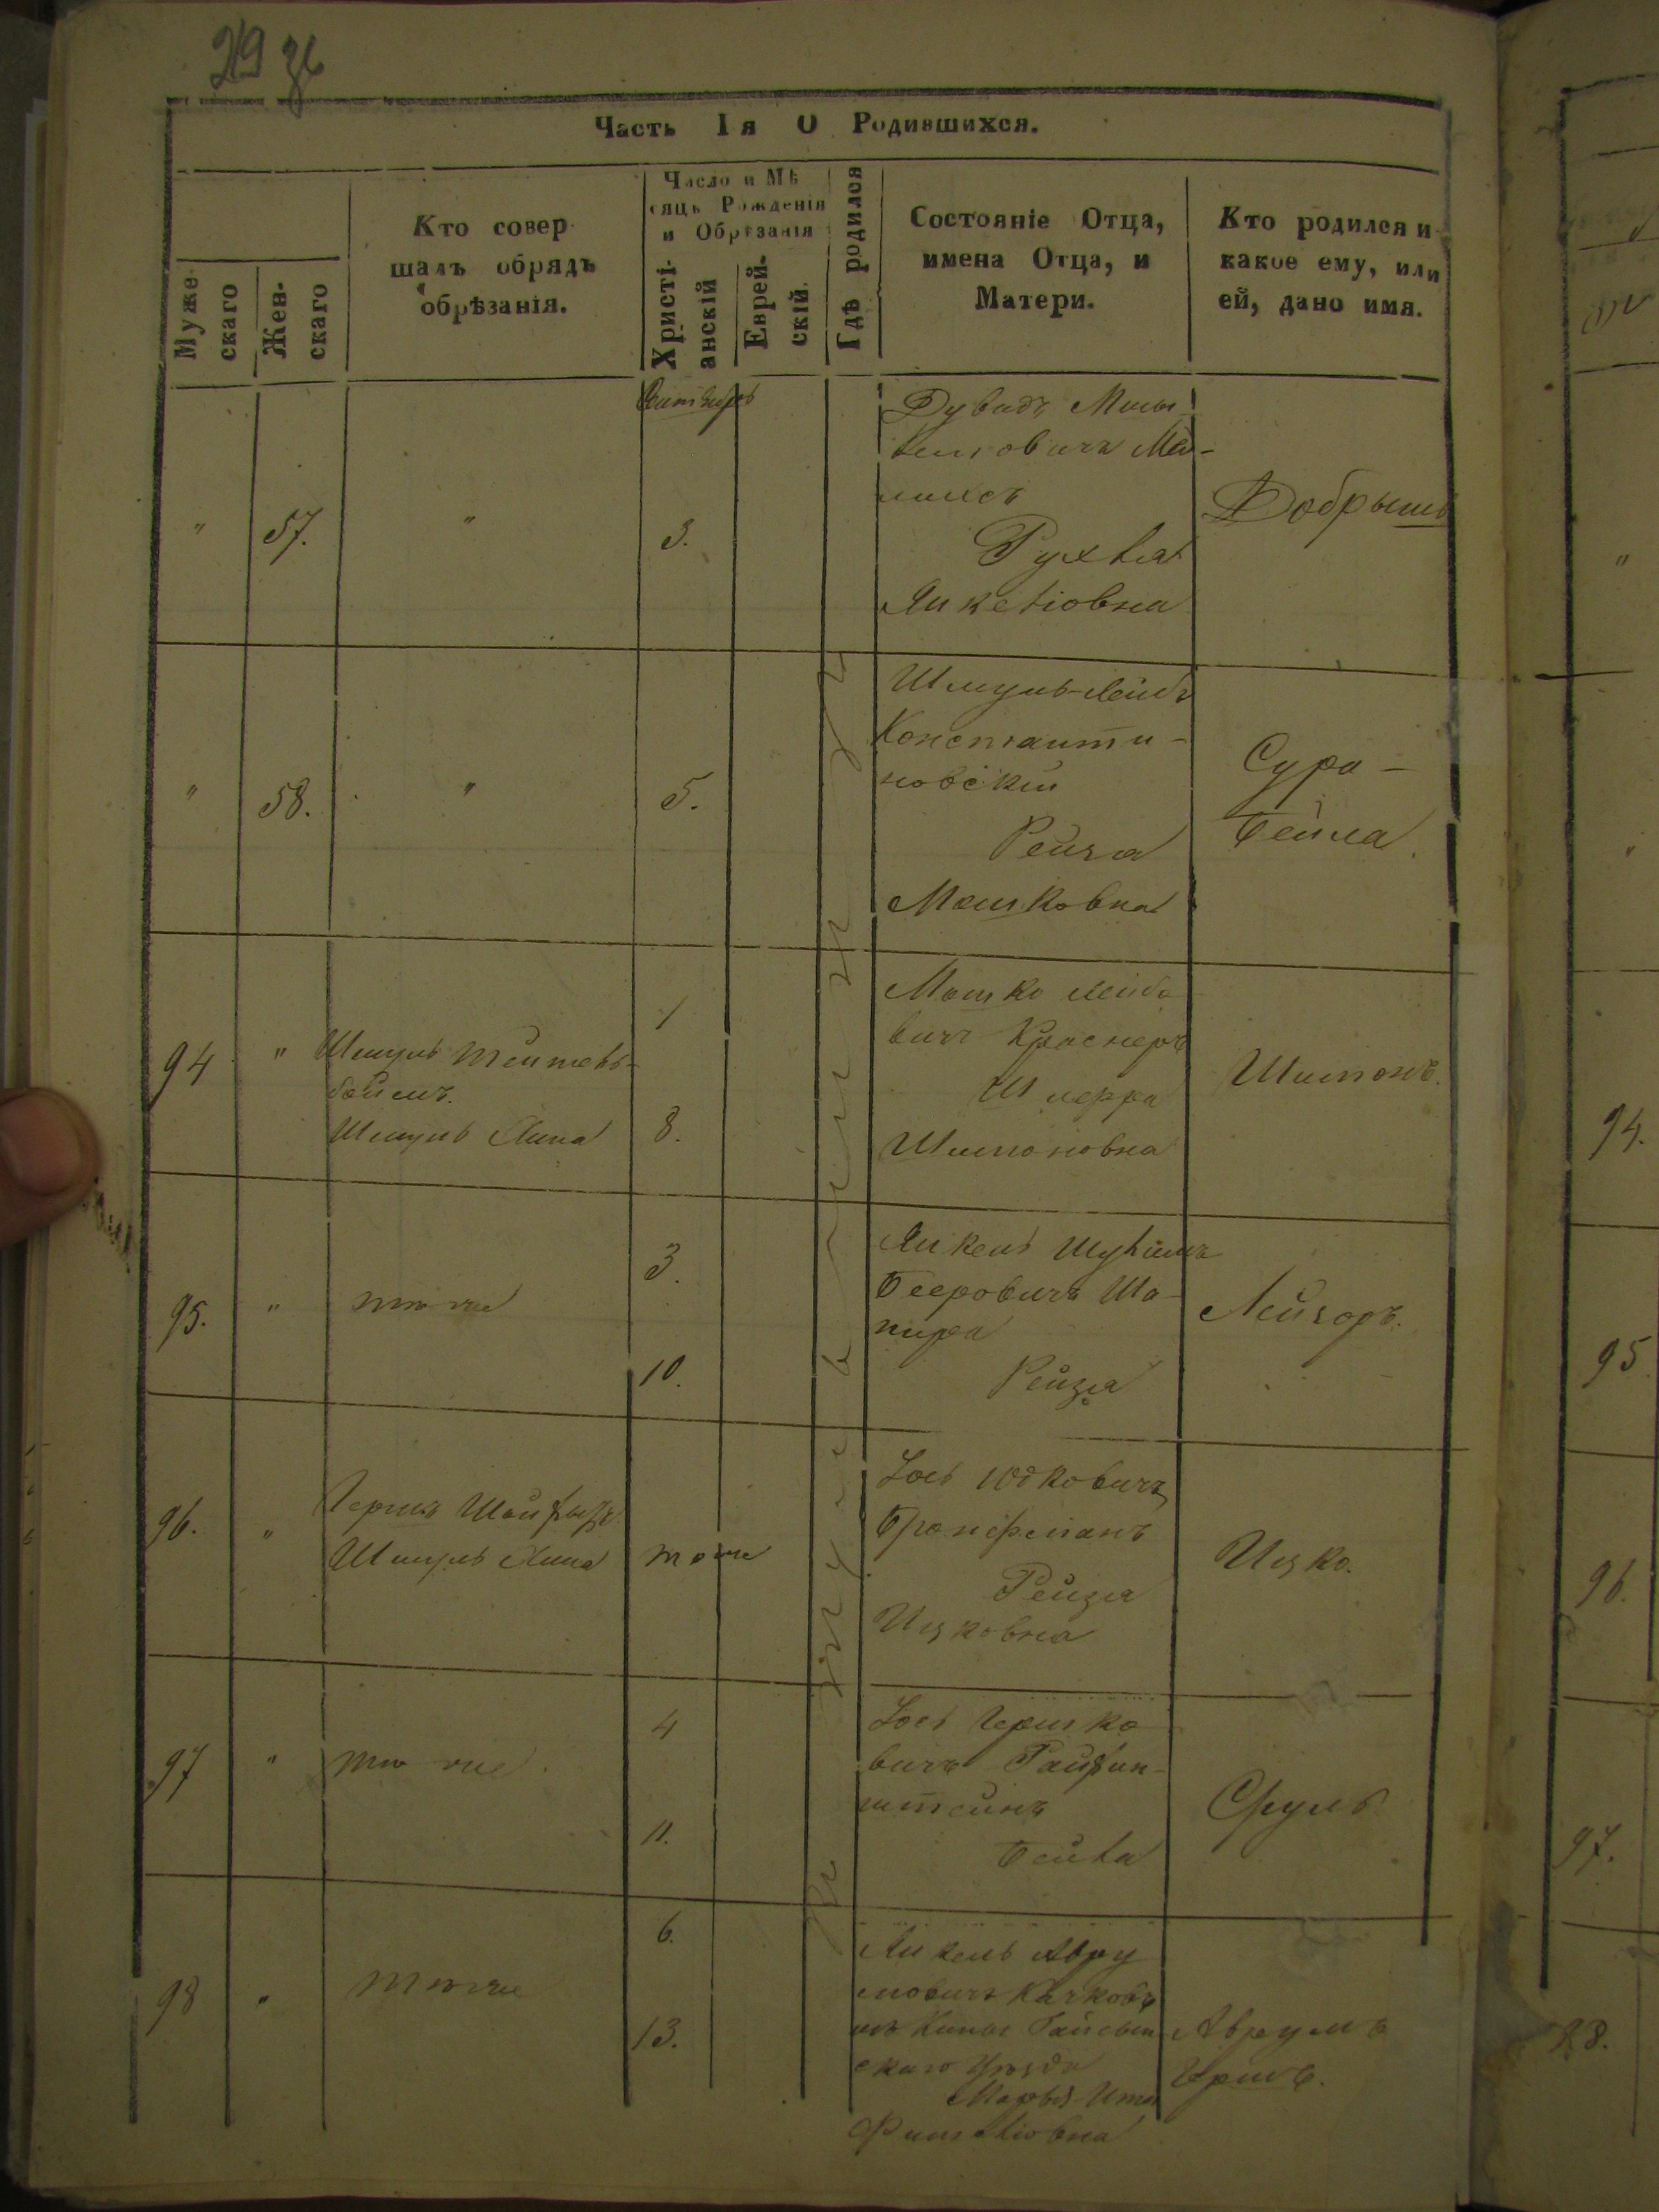 29
Часть I я О Родившихся.
Муже-
скаго
Жен-
скаго
Кто совер-
шалъ обрядъ
обрѣзанія.
Число и Мѣ
сяцъ Рожденія
и Обрѣзанія
Христі-
анскій
Еврей-
скій.
Гдѣ родился
Состояніе Отца,
имена Отца, и
Матери.
Кто родился и
какое ему, или
ей, дано имя.
Сентября
" 57. " 3.
Дувидъ
Рухля
Янкеліовна
Добрышъ
" 58. " 5.
Шмуль-Лейбъ
Константи-
новскій
Рейза
Мошковна
Сура-
Бейла
94 "
Шмуль Тейтель-
боймъ.
Шмуль Липа
1
8.
Мошко Лейбо
вичъ Краснеръ
Шимоновна
Шимонъ.
95. " тоже
3.
10.
Янкель Шулимъ
Бееровичъ Ша-
пира
Рейзя
Лейзоръ.
96. "
Гершъ
Шмуль Липа
тоже
Іось Юдковичъ
Бронфманъ
Рейзя
Ицковна
Ицко.
97 " тоже
4
11.
Іось Гершко
вичъ
штейнъ
Бейла
Сруль
98 " тоже
6.
13.
Янкель Авру
мовичъ
Гайсин
скаго Уѣзда
Аврумъ
Гершъ.
94.
95
96.
97.
98.